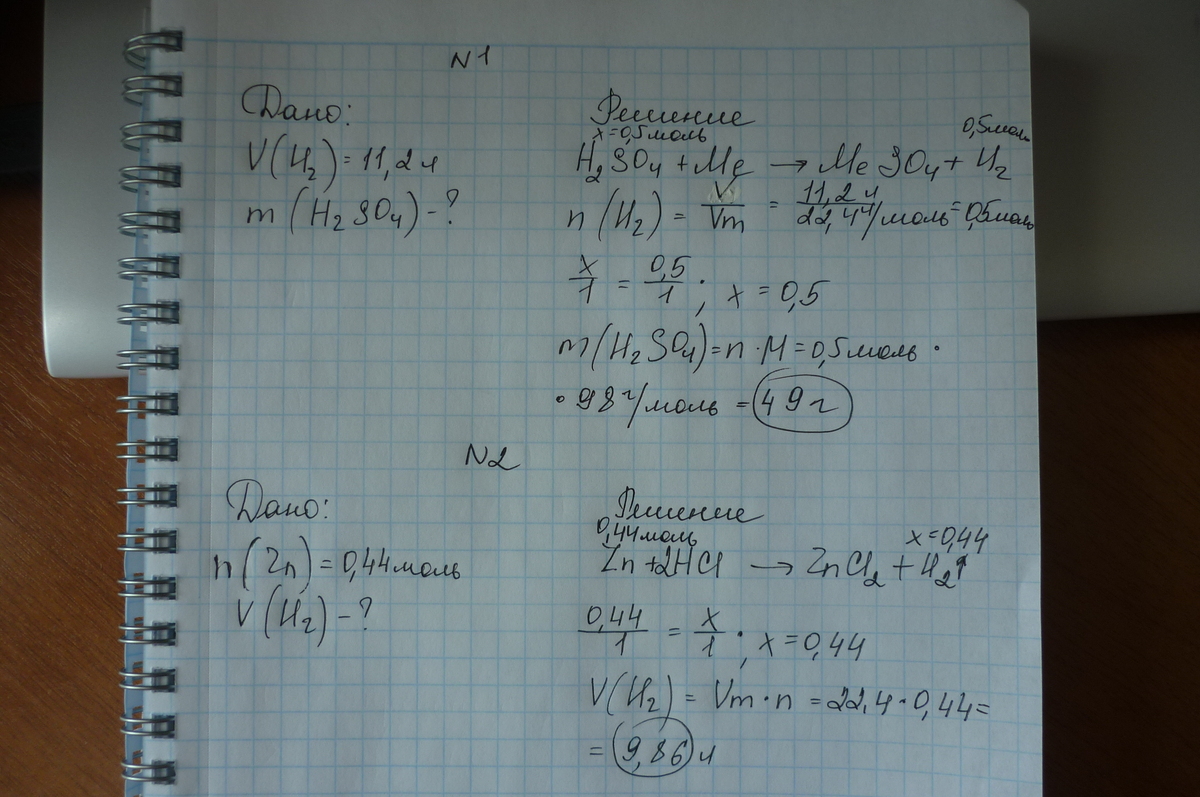 N1
Дано:
V(H₂) = 11,2 л
m(H₂SO₄) - ?
Решение
x = 0,5 моль
0,5 моль
H₂SO₄ + Me → MeSO₄ + H₂
n(H₂) = V/Vm = 11,2 л / 22,4 л/моль = 0,5 моль
x/1 = 0,5/1; x = 0,5
m(H₂SO₄) = n · M = 0,5 моль ·
· 98 г/моль = 49 г
N2
Дано:
n(Zn) = 0,44 моль
V(H₂) - ?
Решение
0,44 моль
x = 0,44
Zn + 2HCl → ZnCl₂ + H₂↑
0,44/1 = x/1; x = 0,44
V(H₂) = Vm · n = 22,4 · 0,44 =
= 9,86 л